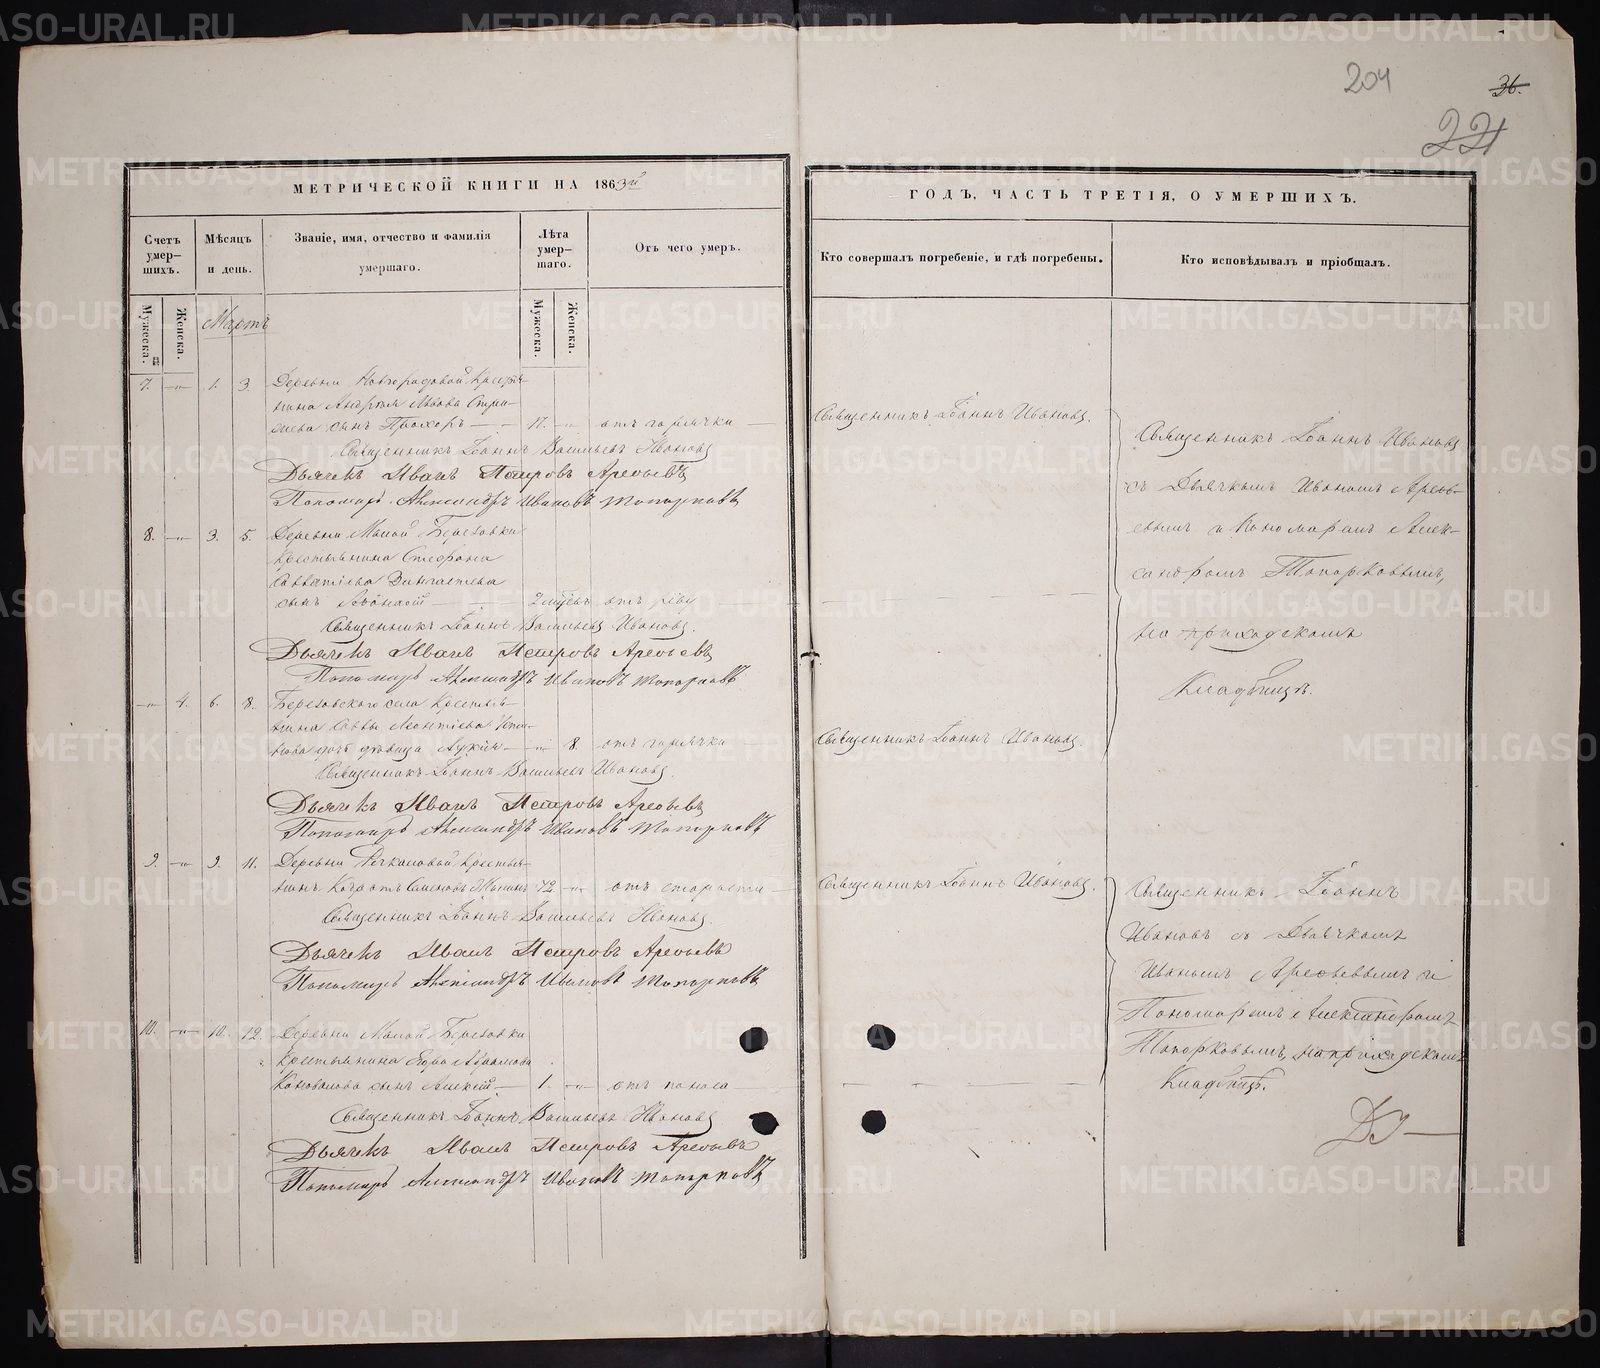 204
36.
221
МЕТРИЧЕСКОЙ КНИГИ НА 1863й
ГОДЪ, ЧАСТЬ ТРЕТІЯ, О УМЕРШИХЪ.
Счетъ умер-шихъ.
Мѣсяцъ и день.
Званіе, имя, отчество и фамилія умершаго.
Лѣта умер-шаго.
Отъ чего умеръ.
Кто совершалъ погребеніе, и гдѣ погребены.
Кто исповѣдывалъ и пріобщалъ.
Мужеска.
Женска.
Мартъ
Мужеска.
Женска.
7. —„— 1. 3. Деревни Новгородовой Кресть-
янина Андрея Львова
сынъ Прохоръ — 17. —„— отъ горячки —
Священникъ Іоаннъ Васильевъ Ивановъ
Дьячекъ Иванъ Петровъ Арефьевъ
Пономарь Александръ Ивановъ Топорковъ
8. —„— 3. 5. Деревни Малой Березовки
Крестьянина Стефана
Савватіева
сынъ Афонасій — 2 мѣсяц. отъ
Священникъ Іоаннъ Васильевъ Ивановъ.
Дьячекъ Иванъ Петровъ Арефьевъ
Пономарь Александръ Ивановъ Топорковъ
—„— 4. 6. 8. Березовскаго села Крестья-
нина Саввы Леонтіева
дочь дѣвица — —„— 8. отъ горячки —
Священникъ Іоаннъ Васильевъ Ивановъ.
Дьячекъ Иванъ Петровъ Арефьевъ
Пономарь Александръ Ивановъ Топорковъ
9. —„— 9. 11. Деревни Речкаловой Кресть-
янинъ Кодратъ Семеновъ 72. —„— отъ старости —
Священникъ Іоаннъ Васильевъ Ивановъ.
Дьячекъ Иванъ Петровъ Арефьевъ
Пономарь Александръ Ивановъ Топорковъ
10. —„— 10. 12. Деревни Малой Березовки
Крестьянина Абрамова
Коновалова сынъ Алексій — 1. —„— отъ поноса —
Священникъ Іоаннъ Васильевъ Ивановъ
Дьячекъ Иванъ Петровъ Арефьевъ
Пономарь Александръ Ивановъ Топорковъ
Священникъ Іоаннъ Ивановъ.
Священникъ Іоаннъ Ивановъ.
Священникъ Іоаннъ Ивановъ.
Священникъ Іоаннъ Ивановъ
съ Дьячкомъ Иваномъ Арефь-
евымъ и Пономаремъ Алек-
сандромъ Топорковымъ,
на приходскомъ
Кладбищѣ.
Священникъ Іоаннъ
Ивановъ съ Дьячкомъ
Иваномъ Арефьевымъ и
Пономаремъ Александромъ
Топорковымъ, на приходскомъ
Кладбищѣ.
METRIKI.GASO-URAL.RU